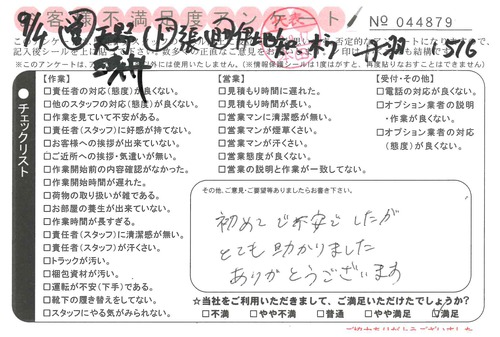 お客様不満足度アンケート
№ 044879
9/4
5/6
チェックリスト
【作業】
□責任者の対応(態度)が良くない。
□他のスタッフの対応(態度)が良くない。
□作業を見ていて不安がある。
□責任者(スタッフ)に好感が持てない。
□お客様への挨拶が出来ていない。
□ご近所への挨拶・気遣いが無い。
□作業開始前の内容確認がなかった。
□作業開始時間が遅れた。
□荷物の取り扱いが雑である。
□お部屋の養生が出来ていない。
□作業時間が長すぎる。
□責任者(スタッフ)に清潔感が無い。
□責任者(スタッフ)が汗くさい。
□トラックが汚い。
□梱包資材が汚い。
□運転が不安(下手)である。
□靴下の履き替えをしてない。
□スタッフにやる気がみられない。
【営業】
□見積もり時間に遅れた。
□見積もり時間が長い。
□営業マンに清潔感が無い。
□営業マンが煙草くさい。
□営業マンが汗くさい。
□営業態度が良くない。
□営業の説明と作業が一致してない。
【受付・その他】
□電話の対応が良くない。
□オプション業者の説明
・作業が良くない。
□オプション業者の対応
(態度)が良くない。
その他、ご意見・ご要望等ありましたらお書き下さい。
初めてで不安でしたが
とても助かりました
ありがとうございます
☆当社をご利用いただきまして、ご満足いただけたでしょうか?
□不満 □やや不満 □普通 □やや満足 ☑満足
ご協力ありがとうございました